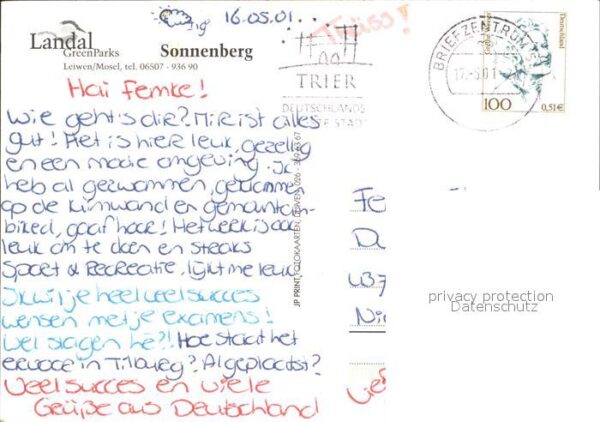 16.05.01...
Tschüss!
Landal
GreenParks
Sonnenberg
Leiwen/Mosel, tel. 06507 - 936 90
TRIER
DEUTSCHLANDS
STADT
BRIEFZENTRUM
Deutschland
100
0,51€
Hai Femke!
Wie geht's dir? Mir ist alles
gut! Het is hier leuk, gezellig
en een mooie omgeving. Ik
heb al gezwommen, geklommen
op de klimwand en gemountain-
biked, gaaf hoor! Het werk is ook
leuk om te doen en steaks
Sport & Recreatie, lijkt me leuk.
Ik wil je heel veel succes
wensen met je examens!
Wel slagen hè?! Hoe staat het
ervoor in Tilburg? Al geplaatst?
Veel succes en viele
Grüße aus Deutschland
JP PRINT, FOLDKAARTEN, LEIWEN, 026 - 389 63 67
Fe
Da
WB7
Nie
Lief
privacy protection
Datenschutz